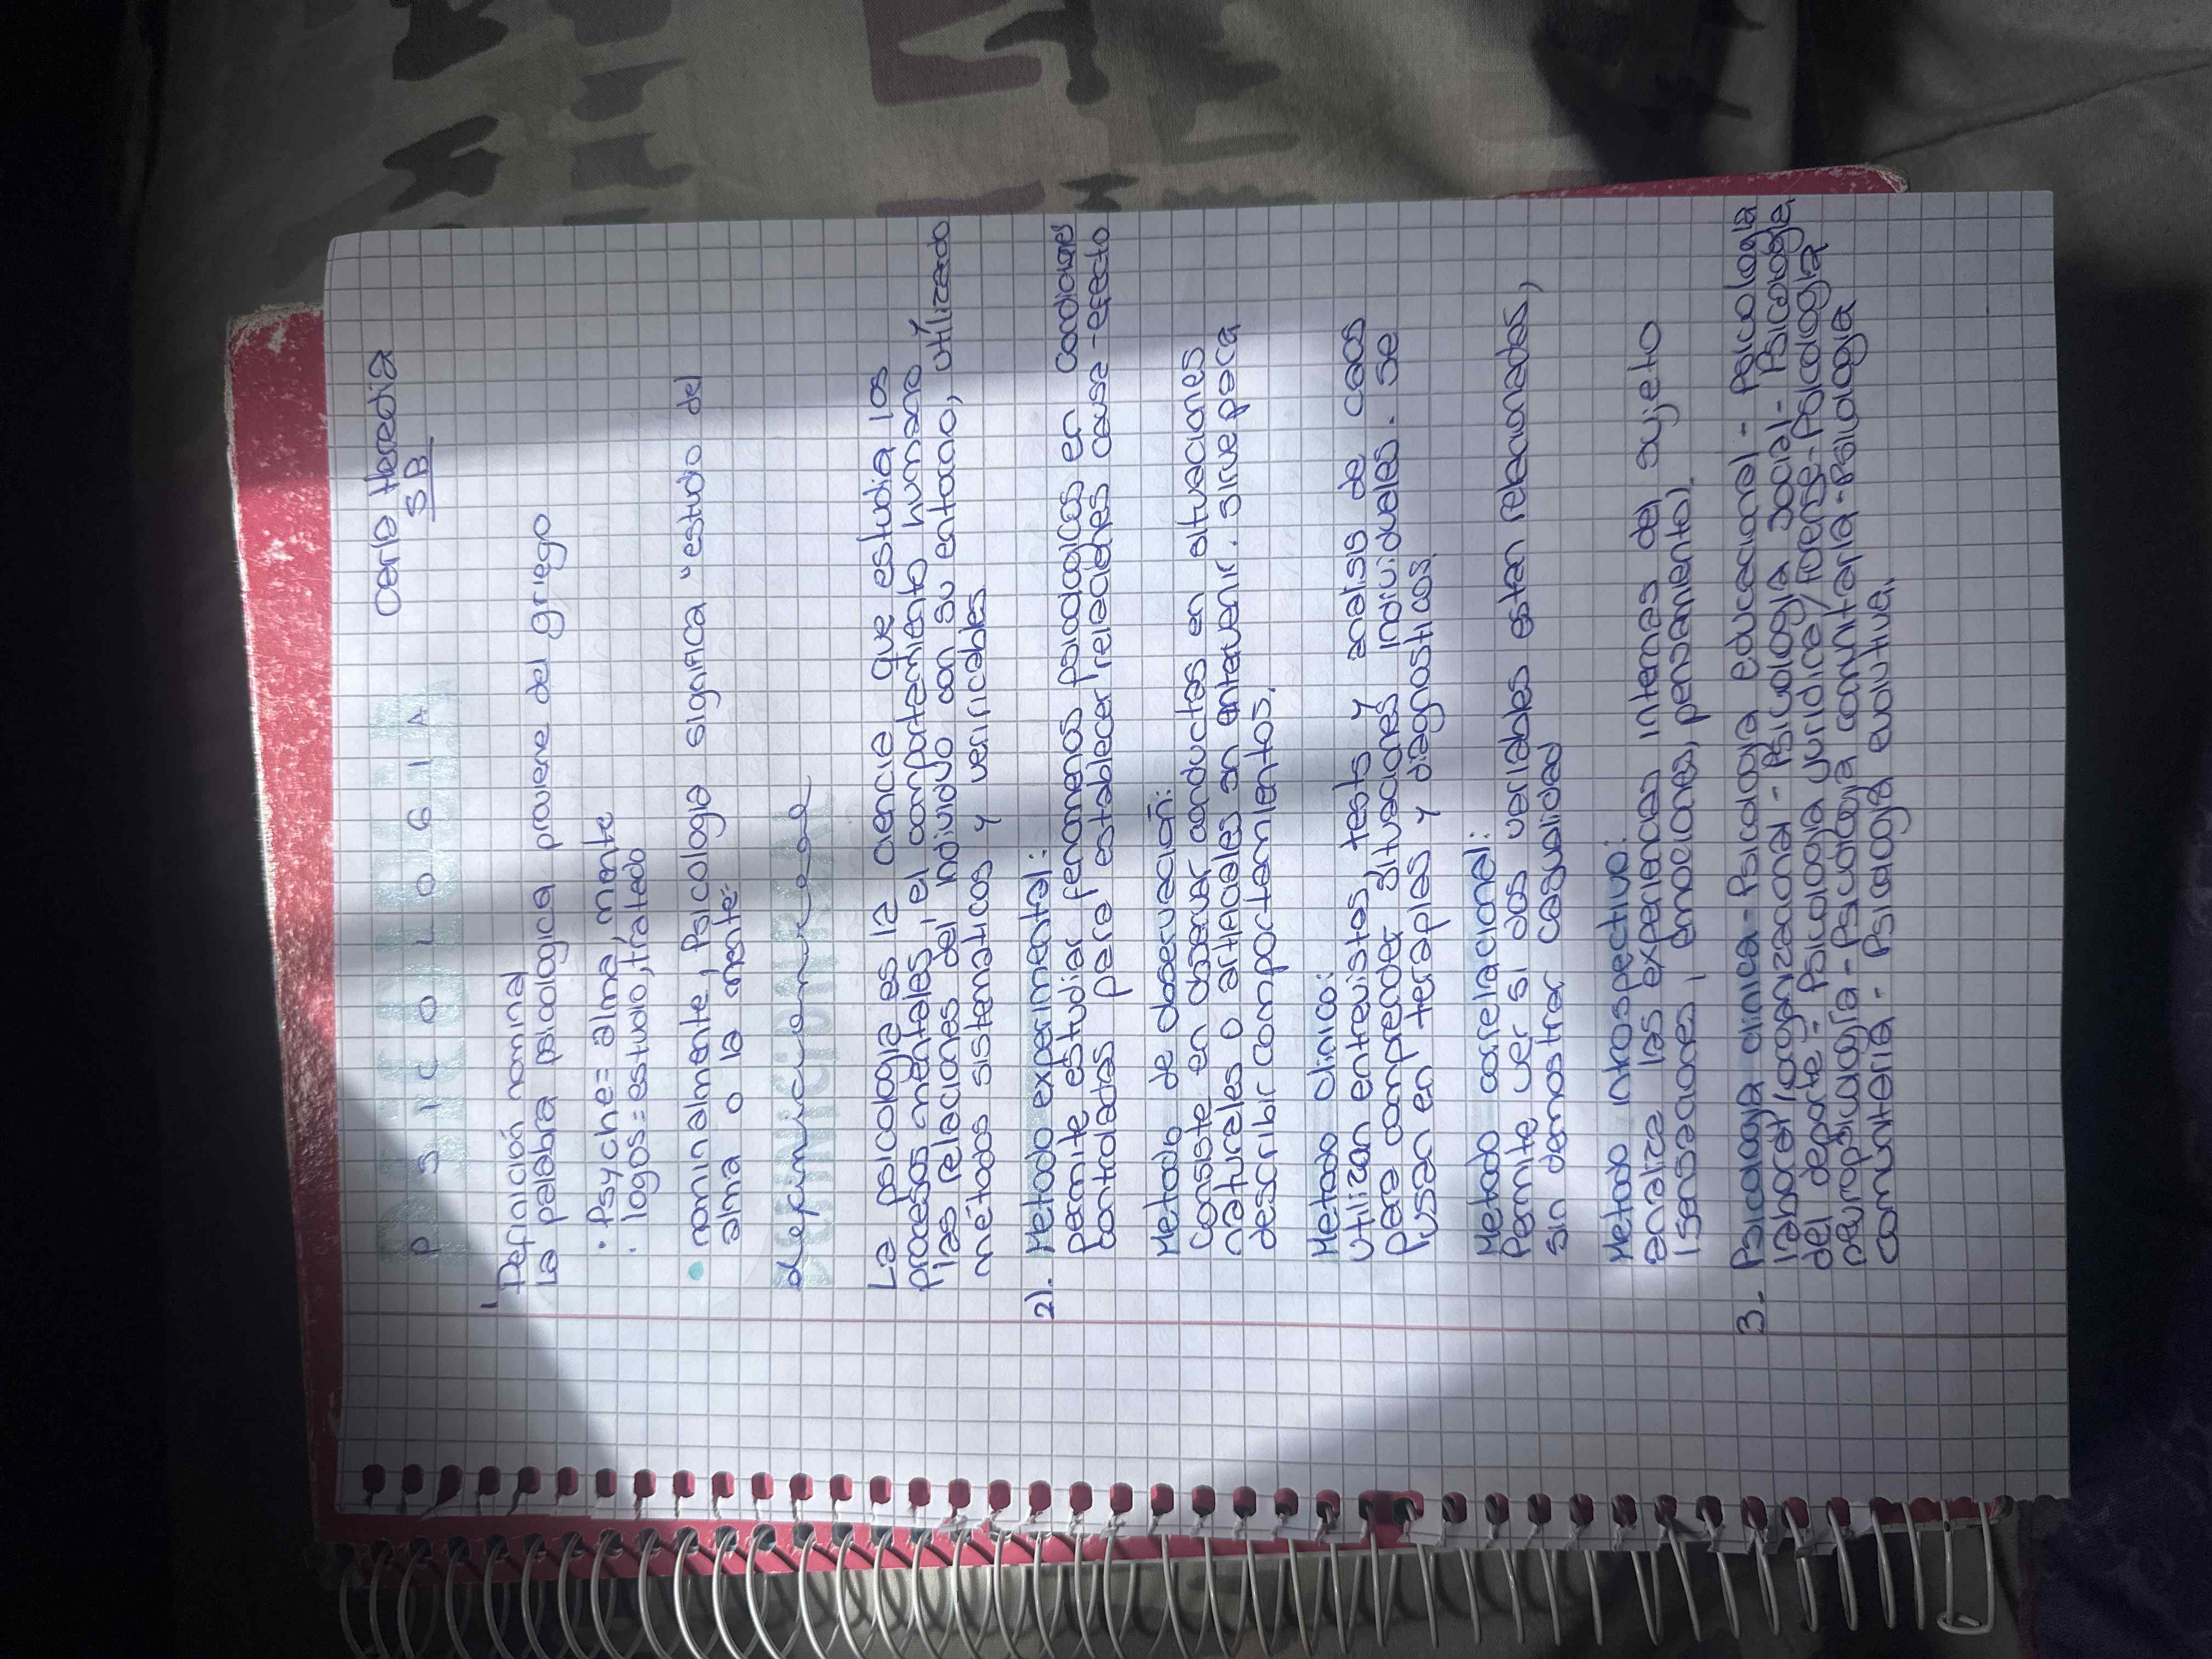 Carla Heredia
PSICOLOGIA 5B
1 Definición nominal
La palabra psicologica proviene del griego
· Psyche = alma, mente
· logos = estudio, tratado
• nominalmente, Psicologia significa "estudio del
alma o la mente"
definicion real
La psicologia es la ciencia que estudia los
procesos mentales, el comportamiento humano y
las relaciones del individuo con su entorno, utilizando
métodos sistematicos y verificables
2). Metodo experimental:
permite estudiar fenomenos psicologicos en condiciones
controladas para establecer relaciones causa-efecto
Metodo de observación:
Consiste en observar conductas en situaciones
naturales o artificiales sn entervenir. Sirve para
describir comportamientos.
Metodo clinico:
Utilizan entrevistas, tests y analisis de casos
para comprender situaciones individuales. Se
usan en terapias y diagnosticos.
Metodo correlacional:
Permite ver si dos variables estan relacionadas,
sin demostrar casualidad
Metodo introspectivo:
analiza las experiencias internas del sujeto
(sensaciones, emociones, pensamiento).
3- Psicologia clinica - Psicologia educacional - Psicologia
laboral/organizacional - Psicologia social - Psicologia
del deporte - Psicologia juridica/forense - Psicologia
neuropsicologia - Psicologia comunitaria - Psicologia
comunitaria - Psicologia evolutiva.